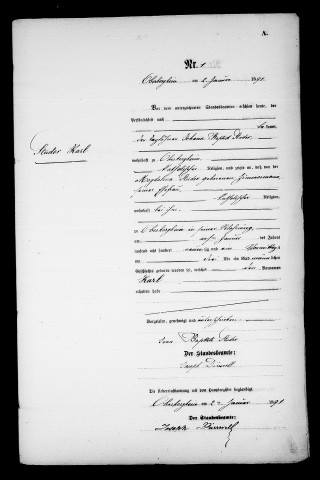 A.
Nr. 1
Oberbergheim am 2. Januar 1891
Vor dem unterzeichneten Standesbeamten erschien heute, der
Persönlichkeit nach
be kannt,
der Taglöhner Johann Baptist Studer
Studer Karl
wohnhaft zu
katholischer Religion, und zeigte an, daß von der
Magdalena Studer geborenen Zimmermann
seiner Ehefrau
katholischer Religion,
wohnhaft bei ihm
zu in seiner Wohnung
am Januar des Jahres
tausend acht hundert neunzig und ein Vormittags
um drei Uhr ein Kind männlichen
Geschlechts geboren worden sei, welches den Vornamen
Karl
erhalten habe
Vorgelesen, genehmigt und unterschrieben
Baptist Studer
Der Standesbeamte:
Joseph
Die Uebereinstimmung mit dem Hauptregister beglaubigt
am 2. Januar 1891
Der Standesbeamte:
Joseph